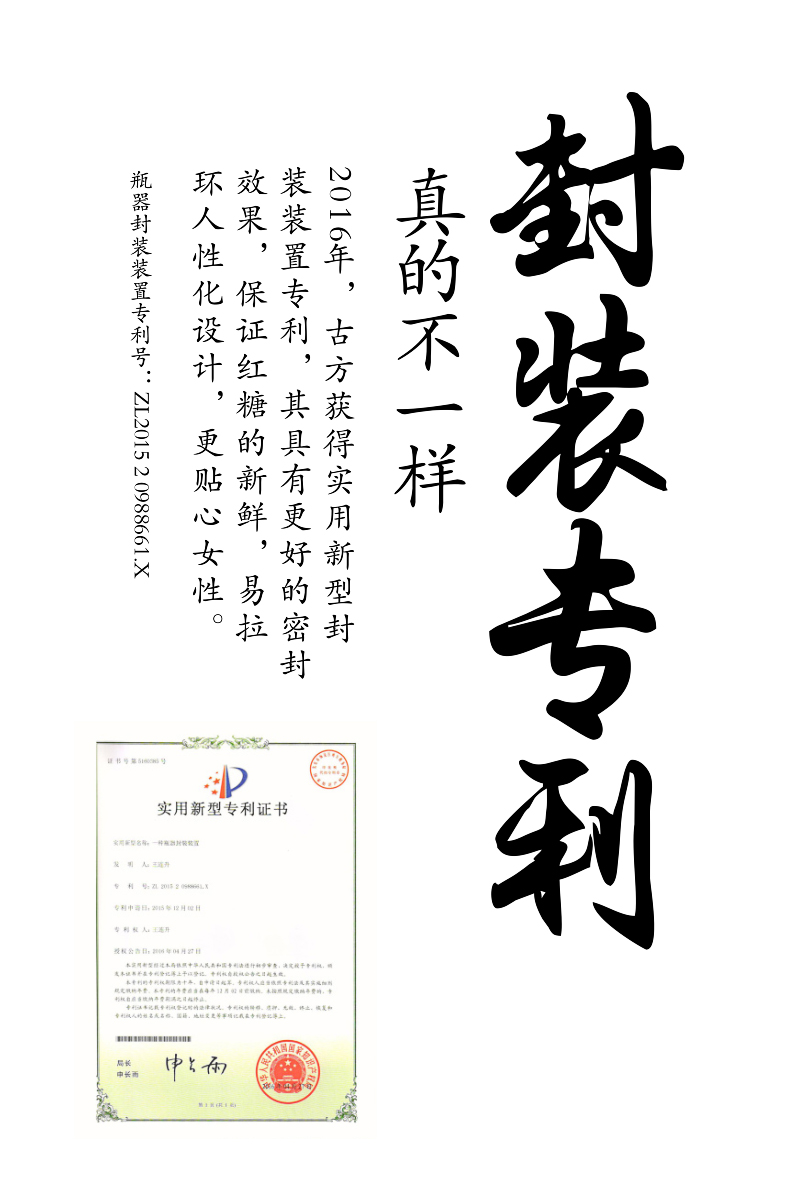 封装专利
真的不一样
2016年，古方获得实用新型封
装装置专利，其具有更好的密封
效果，保证红糖的新鲜，易拉
环人性化设计，更贴心女性。
瓶器封装装置专利号：ZL2015 2 0988661.X
实用新型专利证书
实用新型名称：一种瓶器封装装置
发 明 人：王连升
专 利 号：ZL 2015 2 0988661.X
专利申请日：2015年12月02日
专 利 权 人：王连升
授权公告日：2016年04月27日
局长
申长雨
第1页(共1页)